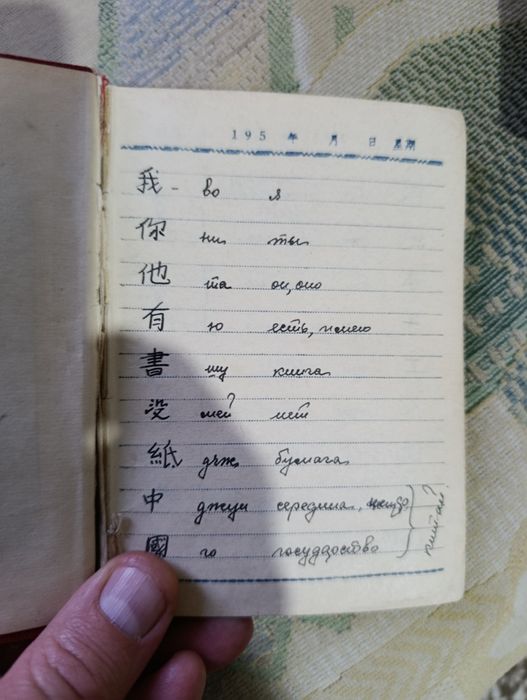 195 年 月 日 星期
我 - во я
你 ни ты
他 та он, оно
有 ю есть, имею
書 шу книга
没 мей? нет
紙 бумага
中 джун середина,
國 го государство
китай?